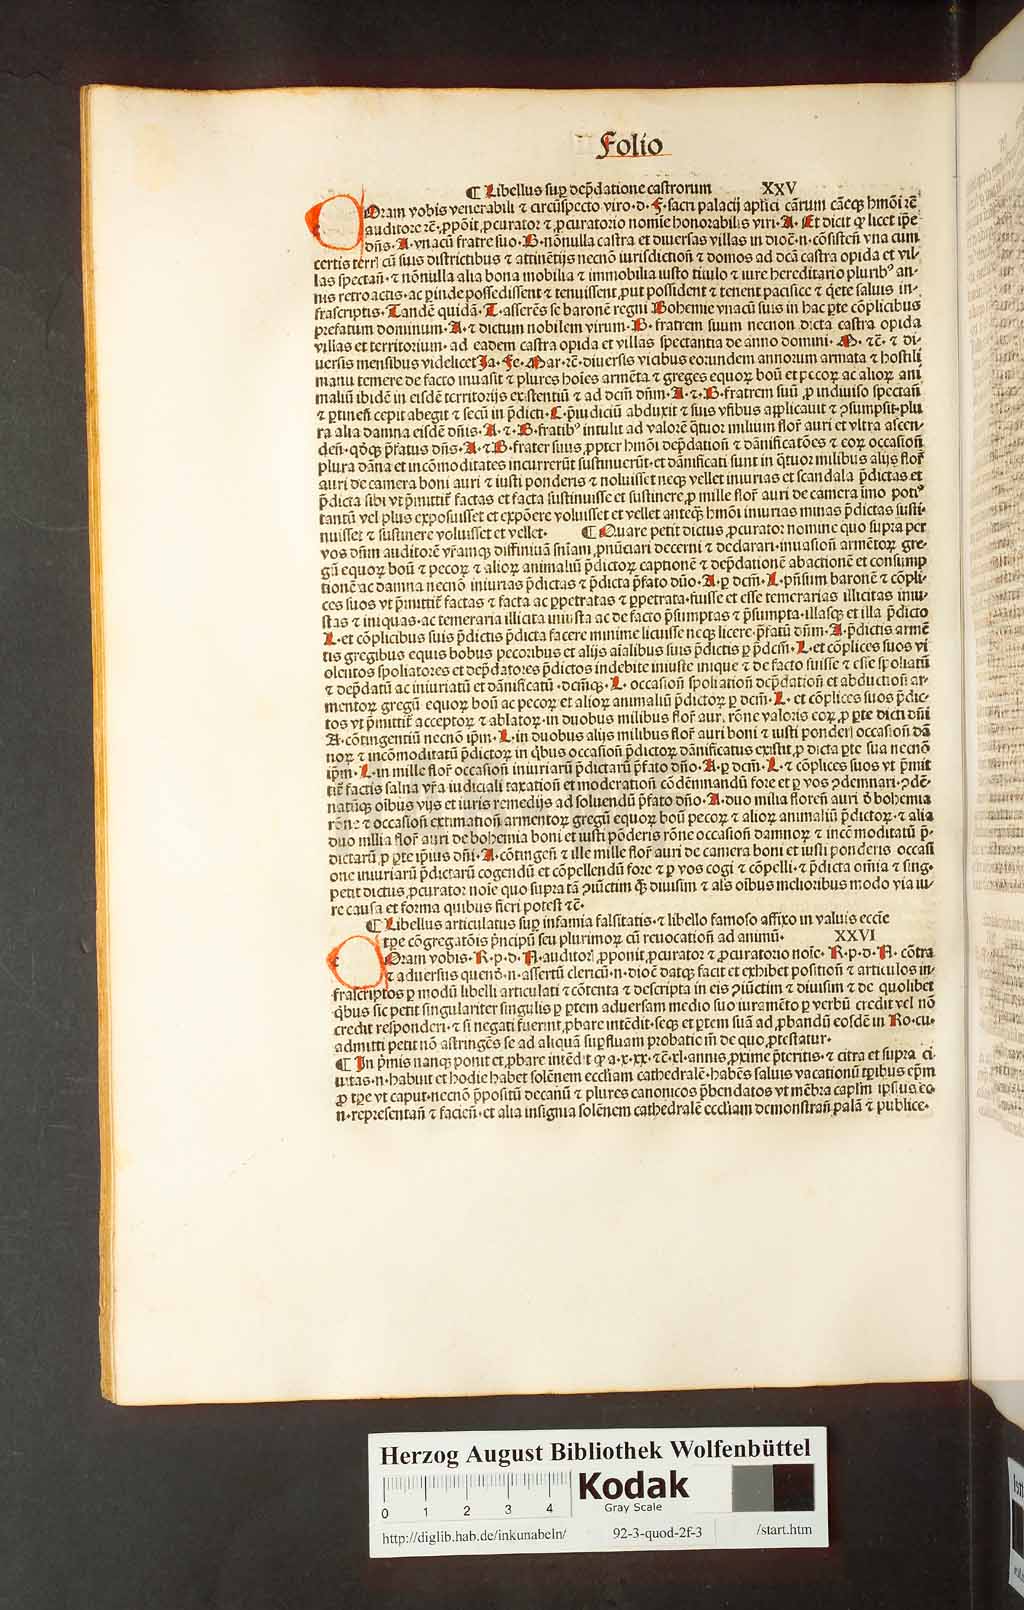 Folio
¶ Libellus sup dep̄datione castrorum XXV
COram vobis venerabili ⁊ circūspecto viro·d·F·sacri palacij aplici cārum cāeqꝫ hmōi rē
auditore rē·ꝓpōit ꝓcurator ⁊ ꝓcuratorio nomīe honorabilis viri·A· Et dicit ꝙ licet ip̄e
dn̄s·A·vnacū fratre suo·B·nōnulla castra et diuersas villas in dioē·n·cōsisteñ vna cum
certis terrꝭ cū suis districtibus ⁊ attinētijs necnō iurisdictioñ ⁊ domos ad dcā castra opida et vil-
las spectañ·⁊ nōnulla alia bona mobilia ⁊ immobilia iusto titulo ⁊ iure hereditario plurib⁹ an-
nis retroactis·ac ꝑinde possedissent ⁊ tenuissent ꝓut possident ⁊ tenent pacifice ⁊ q̄ete saluis in-
frascriptus·Tandē quidā·T·asserēs se baronē regni Bohemie vnacū suis in hac ꝑte cōplicibus
prefatum dominum·A·⁊ dictum nobilem virum·B·fratrem suum necnon dicta castra opida
villas et territorium·ad eadem castra opida et villas spectantia de anno domini·M·rē·⁊ di-
uersis mensibus videlicet Ja·Fe·Mar·rē·diuersis vicibus eorundem annorum armata ⁊ hostili
manu temere de facto inuasit ⁊ plures hoīes armēta ⁊ greges equoꝝ boū et pecoꝝ ac alioꝝ ani
maliū ibidē in eisdē territorijs existentiū ⁊ ad dcm̄ dn̄m·A·⁊·B·fratrem suū ꝓ indiuiso spectañ
⁊ ꝑtineñ cepit abegit ⁊ secū in p̄dicti·L·p̄iudiciū abduxit ⁊ suis vsibus applicauit ⁊ ꝯsumpsit·plu
ra alia damna eisdē dn̄is·A·⁊·B·fratib⁹ intulit ad valorē q̄tuor milium floꝝ auri et vltra ascen-
deñ·qd̓qꝫ p̄fatus dn̄s·A·⁊ B·frater suus ꝓpter hmōi dep̄datioñ ⁊ dānificatōes ⁊ eoꝝ occasioñ
plura dāna et incōmoditates incurrerūt sustinuerūt·et dānificati sunt in q̄tuor milibus alijs floꝝ
auri de camera boni auri ⁊ iusti ponderis ⁊ noluisset neqꝫ vellet iniurias et scandala p̄dictas et
p̄dicta sibi vt p̄mittiꞇ factas et facta sustinuisse et sustinere ꝓ mille floꝝ auri de camera imo poti⁹
tantū vel plus exposuisset et expōere voluisset et vellet anteqꝫ hmōi iniurias minas p̄dictas susti-
nuisset ⁊ sustinere voluisset et vellet· ¶ Quare petit dictus ꝓcurator nomine quo supra per
vos dn̄m auditorē vr̄amqꝫ diffinitiuā sniam ꝓnūciari decerni ⁊ declarari·inuasioñ armētoꝝ gre-
gū equoꝝ boū ⁊ pecoꝝ ⁊ alioꝝ animaliū p̄dictoꝝ captionē ⁊ dep̄dationē abactionē et consump
tionē ac damna necnō iniurias p̄dictas ⁊ p̄dicta p̄fato dn̄o·A·ꝑ dcm̄·L·p̄nsum baronē ⁊ cōpli-
ces suos vt p̄mittiꞇ factas ⁊ facta ac ꝑpetratas ⁊ ꝑpetrata·fuisse et esse temerarias illicitas iniu-
stas ⁊ iniquas·ac temeraria illicita iniusta ac de facto p̄sumptas ⁊ p̄sumpta·illasqꝫ et illa p̄dicto
L·et cōplicibus suis p̄dictis p̄dicta facere minime licuisse neqꝫ licere·p̄fatū dn̄m·A·p̄dictis armē
tis gregibus equis bobus pecoribus et alijs aīalibus suis p̄dictis ꝑ p̄dcm̄·L·et cōplices suos vi
olentos spoliatores et dep̄datores p̄dictos indebite iniuste inique ⁊ de facto fuisse ⁊ esse spoliatū
⁊ dep̄datū ac iniuriatū et dānificatū·dcmqꝫ·L·occasioñ spoliatioñ dep̄datioñ et abductioñ ar-
mentoꝝ gregū equoꝝ boū ac pecoꝝ et alioꝝ animaliū p̄dictoꝝ ꝑ dcm̄·L·et cōplices suos p̄dic-
tos vt p̄mittiꞇ acceptoꝝ ⁊ ablatoꝝ·in duobus milibus floꝝ auri rōne valoris eoꝝ ꝓ ꝑte dicti dn̄i
A·cōtingentiū necnō ip̄m·L·in duobus alijs milibus floꝝ auri boni ⁊ iusti ponderꝭ occasioñ dā
noꝝ ⁊ incōmoditatū p̄dictoꝝ in q̄bus occasioñ p̄dictoꝝ dānificatus existit ꝓ dicta ꝑte sua necnō
ip̄m·L·in mille floꝝ occasioñ iniuriarū p̄dictarū p̄fato dn̄o·A·ꝑ dcm̄·L·⁊ cōplices suos vt p̄mit
tiꞇ factis salua vr̄a iudiciali taxatioñ et moderatioñ cōdēmnandū fore et ꝑ vos ꝯdemnari·ꝯdē-
natūqꝫ oībus vijs et iuris remedijs ad soluendū p̄fato dn̄o·A·duo milia floreñ auri d̓ bohemia
rōne ⁊ occasioñ extimatioñ armentoꝝ gregū equoꝝ boū pecoꝝ ⁊ alioꝝ animaliū p̄dictoꝝ·⁊ alia
duo millia floꝝ auri de bohemia boni et iusti pōderis rōne occasioñ damnoꝝ ⁊ incōmoditatū p̄-
dictarū ꝓ ꝑte ip̄ius dn̄i·A·cōtingeñ ⁊ ille mille floꝝ auri de camera boni et iusti ponderis occasi
one iniuriarū p̄dictarū cogendū et cōpellendū fore ⁊ ꝑ vos cogi ⁊ cōpelli·⁊ p̄dicta om̄ia ⁊ sing·
petit dictus ꝓcurator noīe quo supra tā ꝯiūctim qꝫ diuisim ⁊ als̄ oībus melioribus modo via iu-
re causa et forma quibus fieri potest rē·
¶ Libellus articulatus sup infamia falsitatis·⁊ libello famoso affixo in valuis eccīe
tp̄e cōgregatōis p̄ncipū seu plurimoꝝ cū reuocatioñ ad animū· XXVI
COram vobis·R·p·d·A·auditori ꝓponit ꝓcurator ⁊ ꝓcuratorio noīe·R·p·d·A·cōtra
⁊ aduersus quend̄·n·assertū clericū·n·dioē datqꝫ facit et exhibet positioñ ⁊ articulos in-
frascriptos ꝑ modū libelli articulati ⁊ cōtenta ⁊ descripta in eis ꝯiūctim ⁊ diuisim ⁊ de quolibet
q̄bus sic petit singulariter singulis ꝑ ꝑtem aduersam medio suo iuramēto ꝑ verbū credit vel nō
credit responderi·⁊ si negati fuerint ꝓbare intēdit·seqꝫ et ꝑtem suā ad ꝓbandū eosdē in Ro·cu·
admitti petit nō astringēs se ad aliquā supfluam probatiōm de quo ꝓtestatur·
¶ In p̄mis nanqꝫ ponit et ꝓbare intēdit ꝙ a·x·xx·rē·xl·annis ꝓxime p̄teritis·⁊ citra et supra ci-
uitas·n·habuit et hodie habet solēnem eccliam cathedralē·habēs saluis vacationū tꝑibus ep̄m
ꝓ tꝑe vt caput·necnō p̄positū decanū ⁊ plures canonicos p̄bendatos vt mēbra caplm̄ ipsius ec·
n·representañ ⁊ facieñ·et alia insignia solēnem cathedralē eccliam demonstrañ palā ⁊ publice·
Herzog August Bibliothek Wolfenbüttel
0 1 2 3 4
Kodak
Gray Scale
http://diglib.hab.de/inkunabeln/ 92-3-quod-2f-3 /start.htm